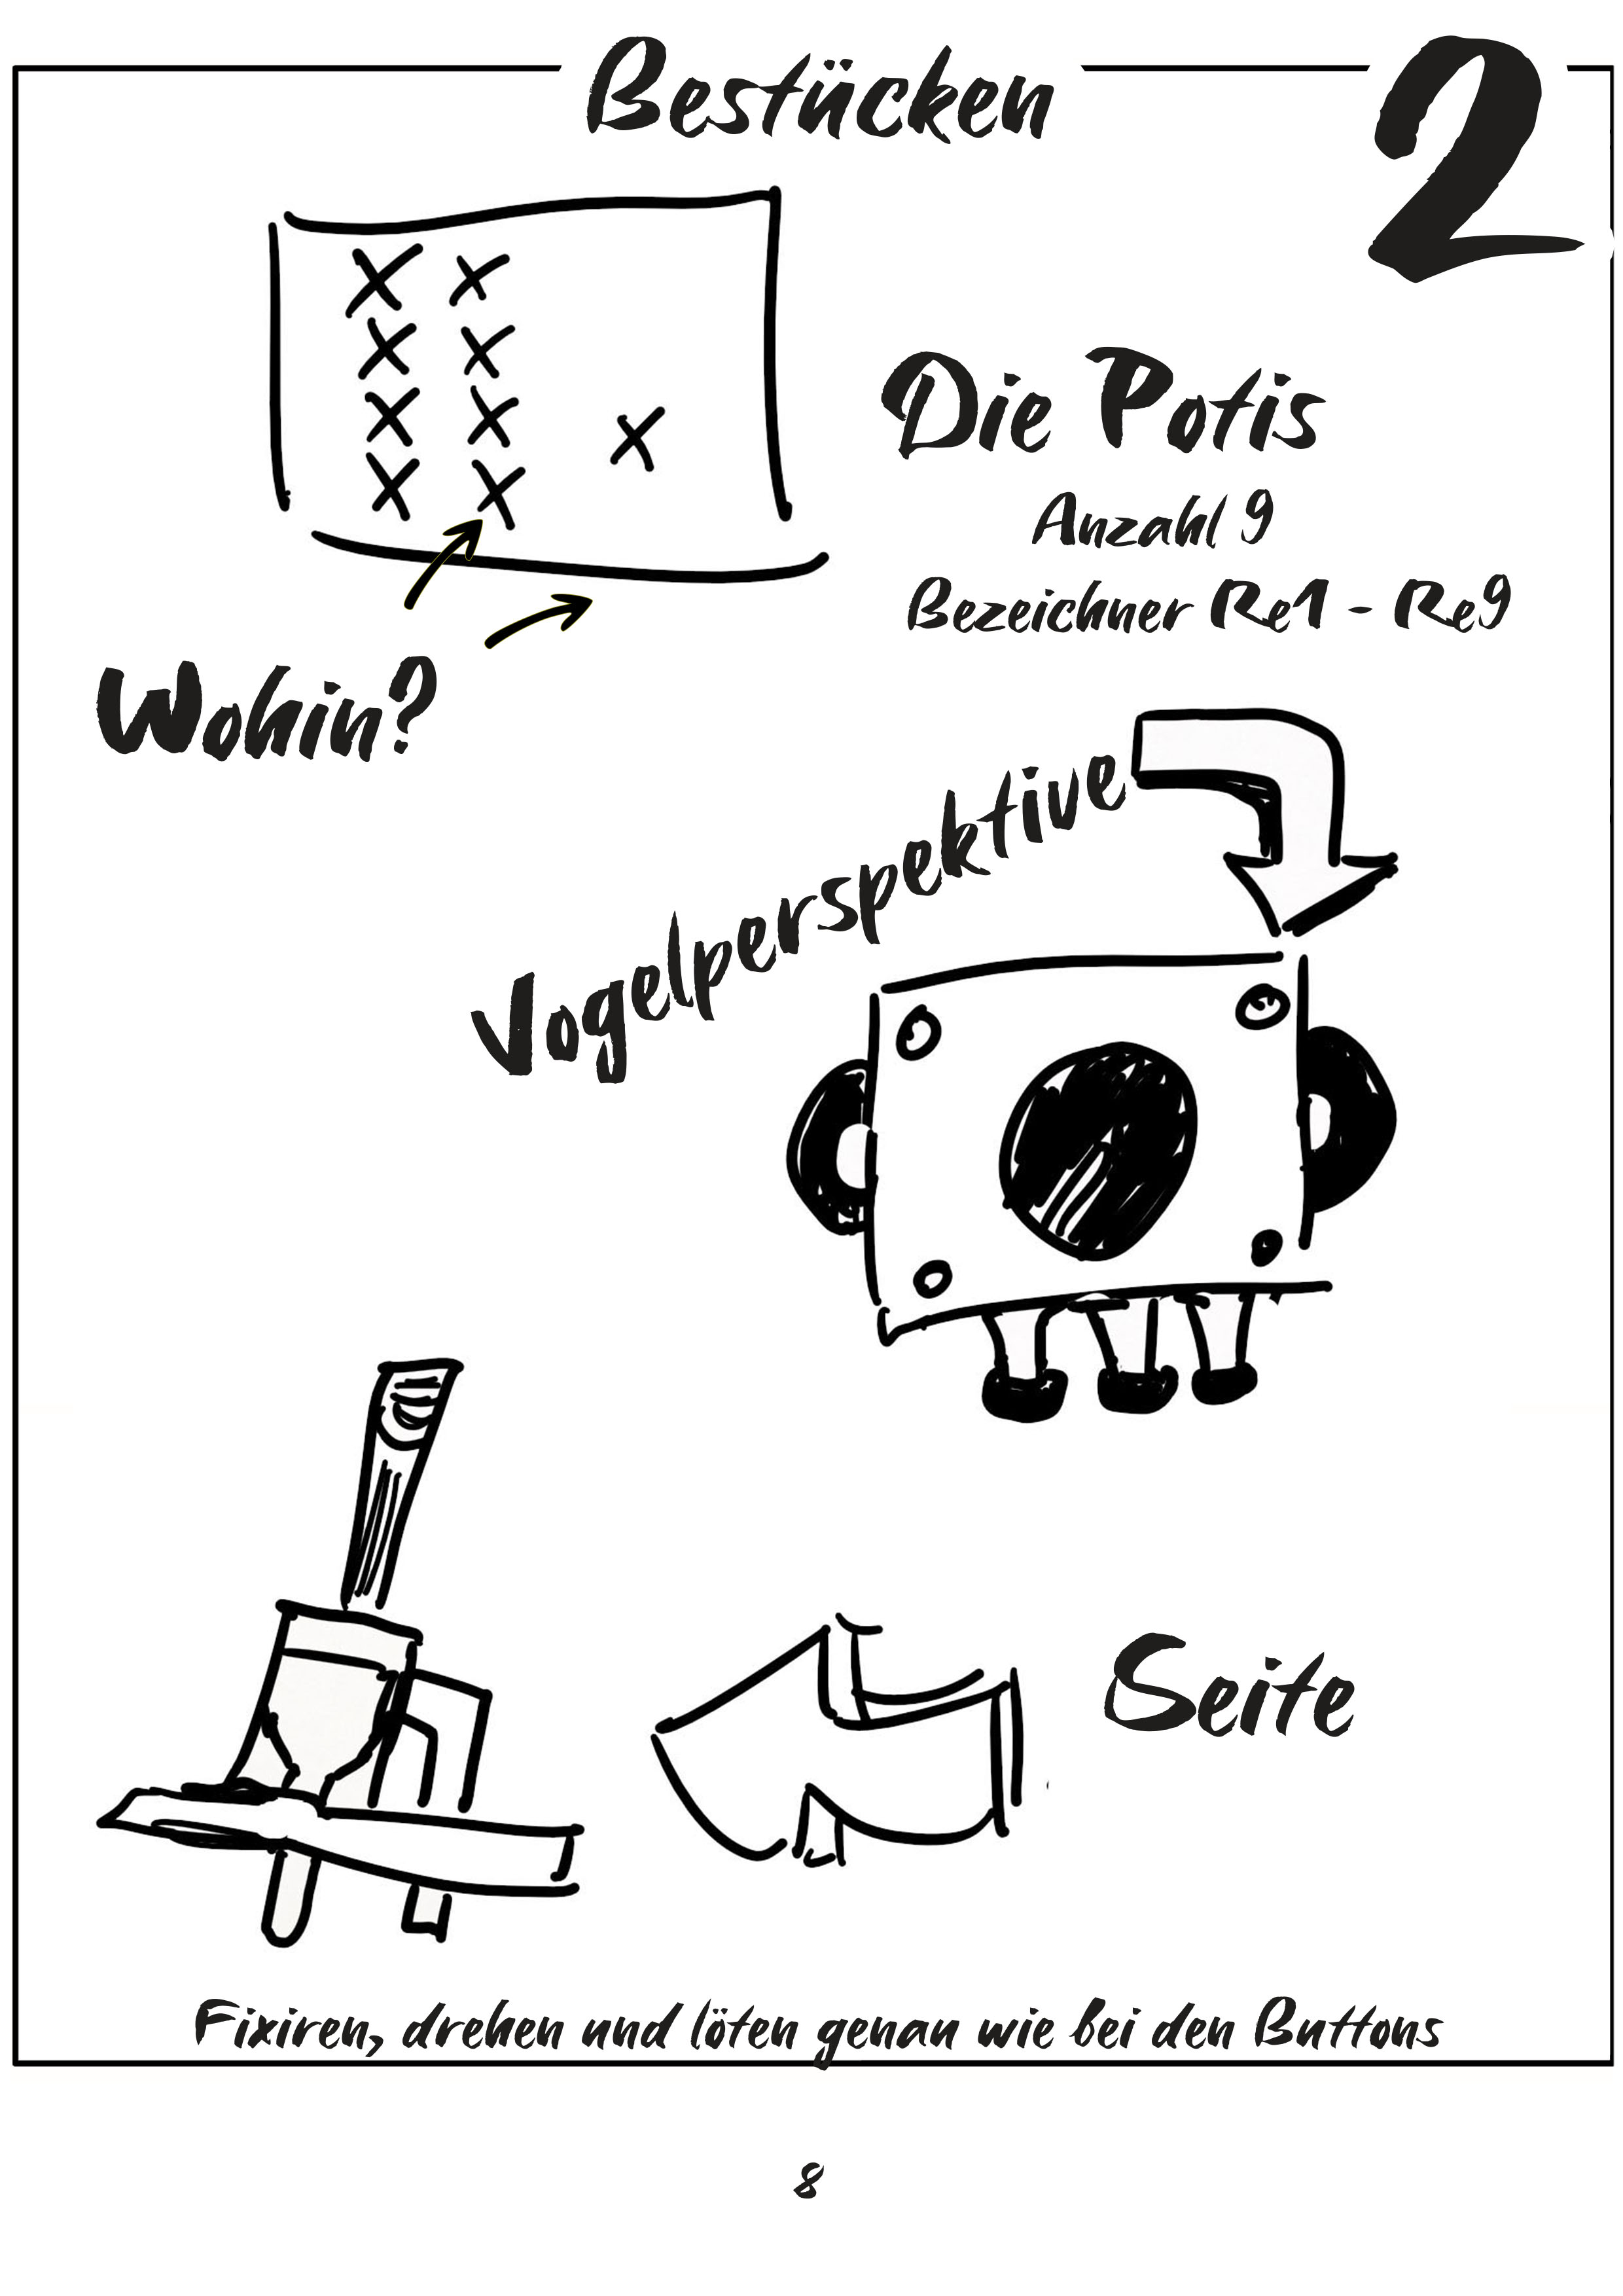 Bestücken
2
Die Potis
Anzahl 9
Bezeichner Re1 - Re9
Wohin?
Vogelperspektive
Seite
Fixiren, drehen und löten genau wie bei den Buttons
8